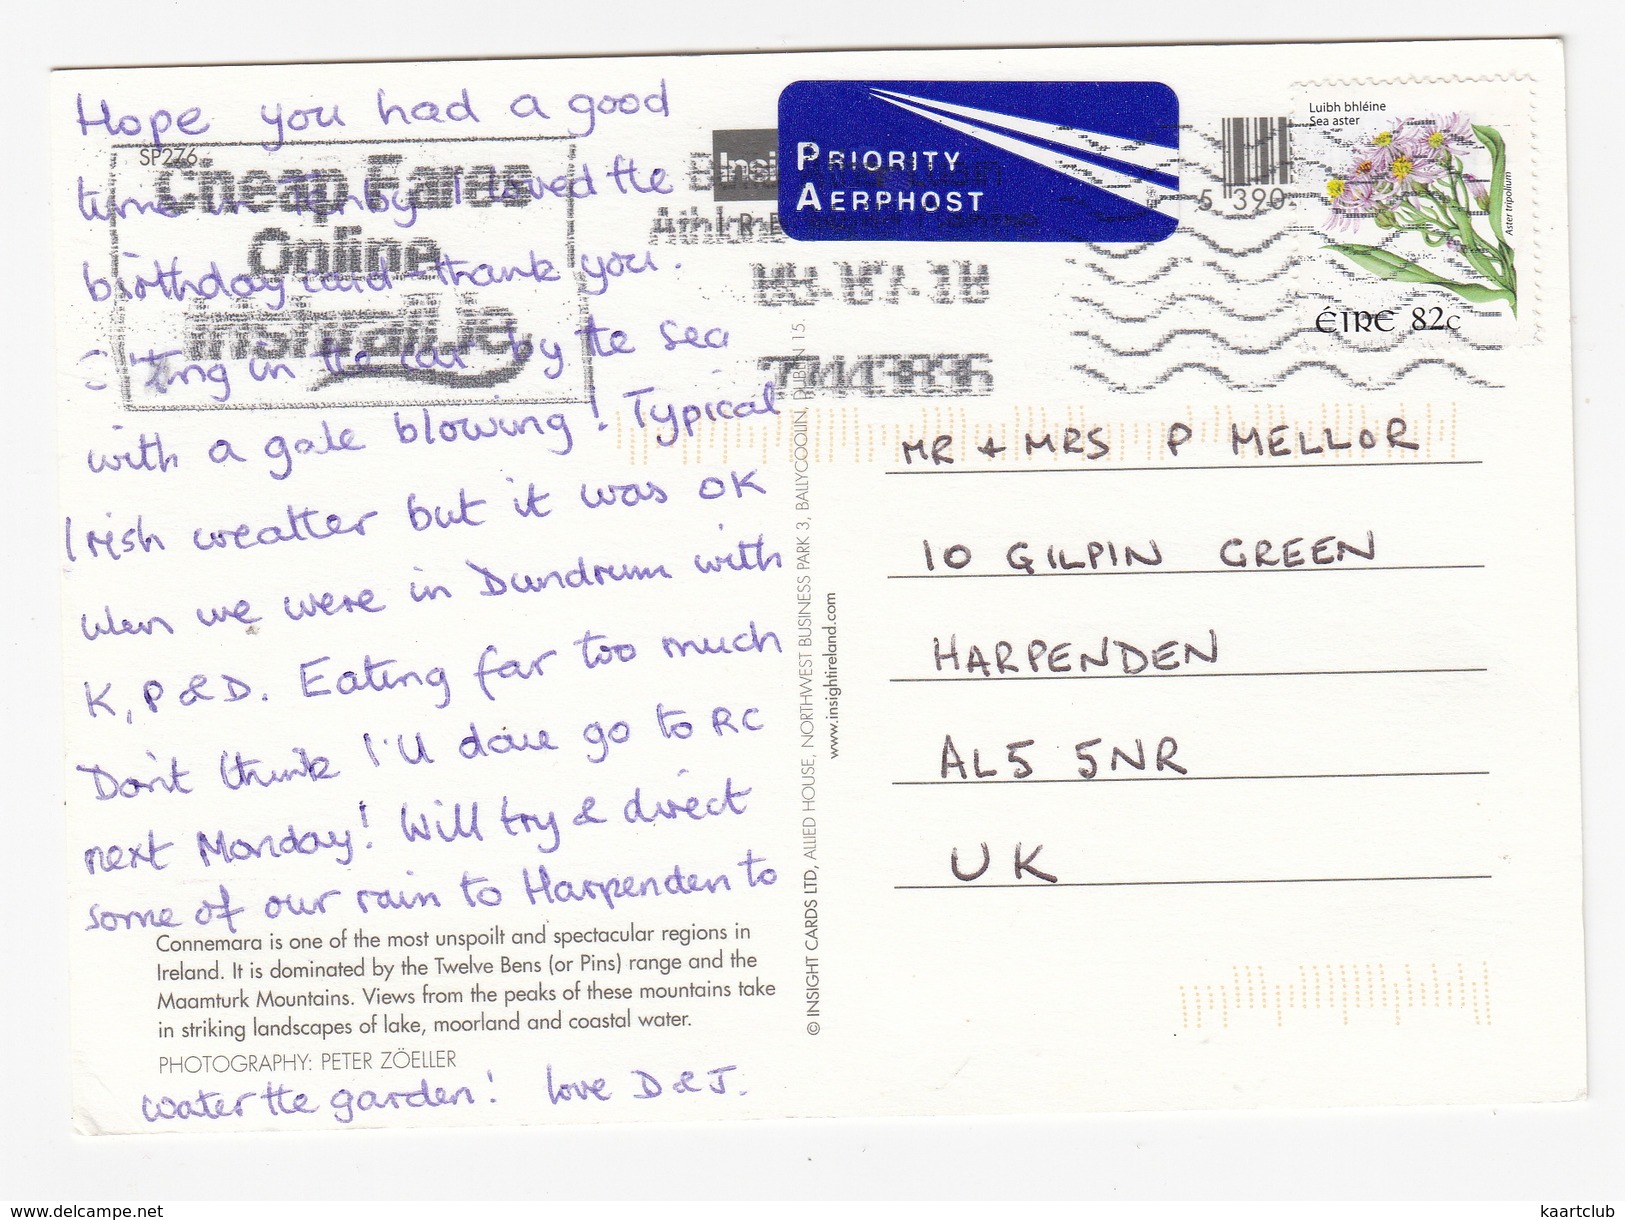 Hope you had a good
time in Tenby. I loved the
birthday card - thank you.
Sitting in the car by the sea
with a gale blowing! Typical
Irish weather but it was OK
when we were in Dundrum with
K, P & D. Eating far too much
Don't think I'll dare go to RC
next Monday! Will try & direct
some of our rain to Harpenden to
water the garden! love D & J.
SP276
Cheap Fares
Online
irishrail.ie
Connemara is one of the most unspoilt and spectacular regions in
Ireland. It is dominated by the Twelve Bens (or Pins) range and the
Maamturk Mountains. Views from the peaks of these mountains take
in striking landscapes of lake, moorland and coastal water.
PHOTOGRAPHY: PETER ZÖELLER
© INSIGHT CARDS LTD, ALLIED HOUSE, NORTHWEST BUSINESS PARK 3, BALLYCOOLIN, DUBLIN 15.
www.insightireland.com
PRIORITY
AERPHOST
5 390
Luibh bhléine
Sea aster
Aster tripolium
ÉIRE 82c
MR + MRS P MELLOR
10 GILPIN GREEN
HARPENDEN
AL5 5NR
UK
www.delcampe.net
kaartclub